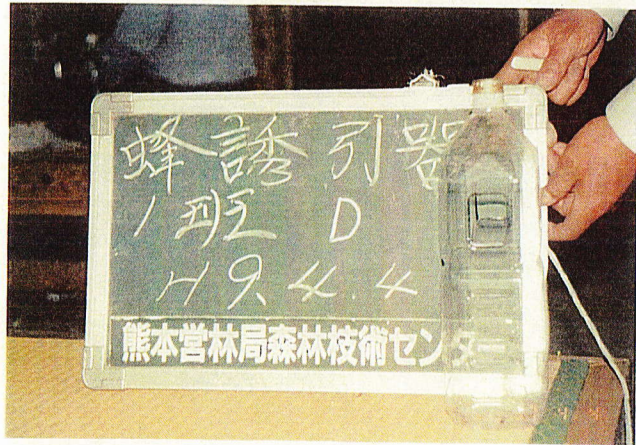 蜂誘引器
1班 D
H9.4.4
熊本営林局森林技術センター